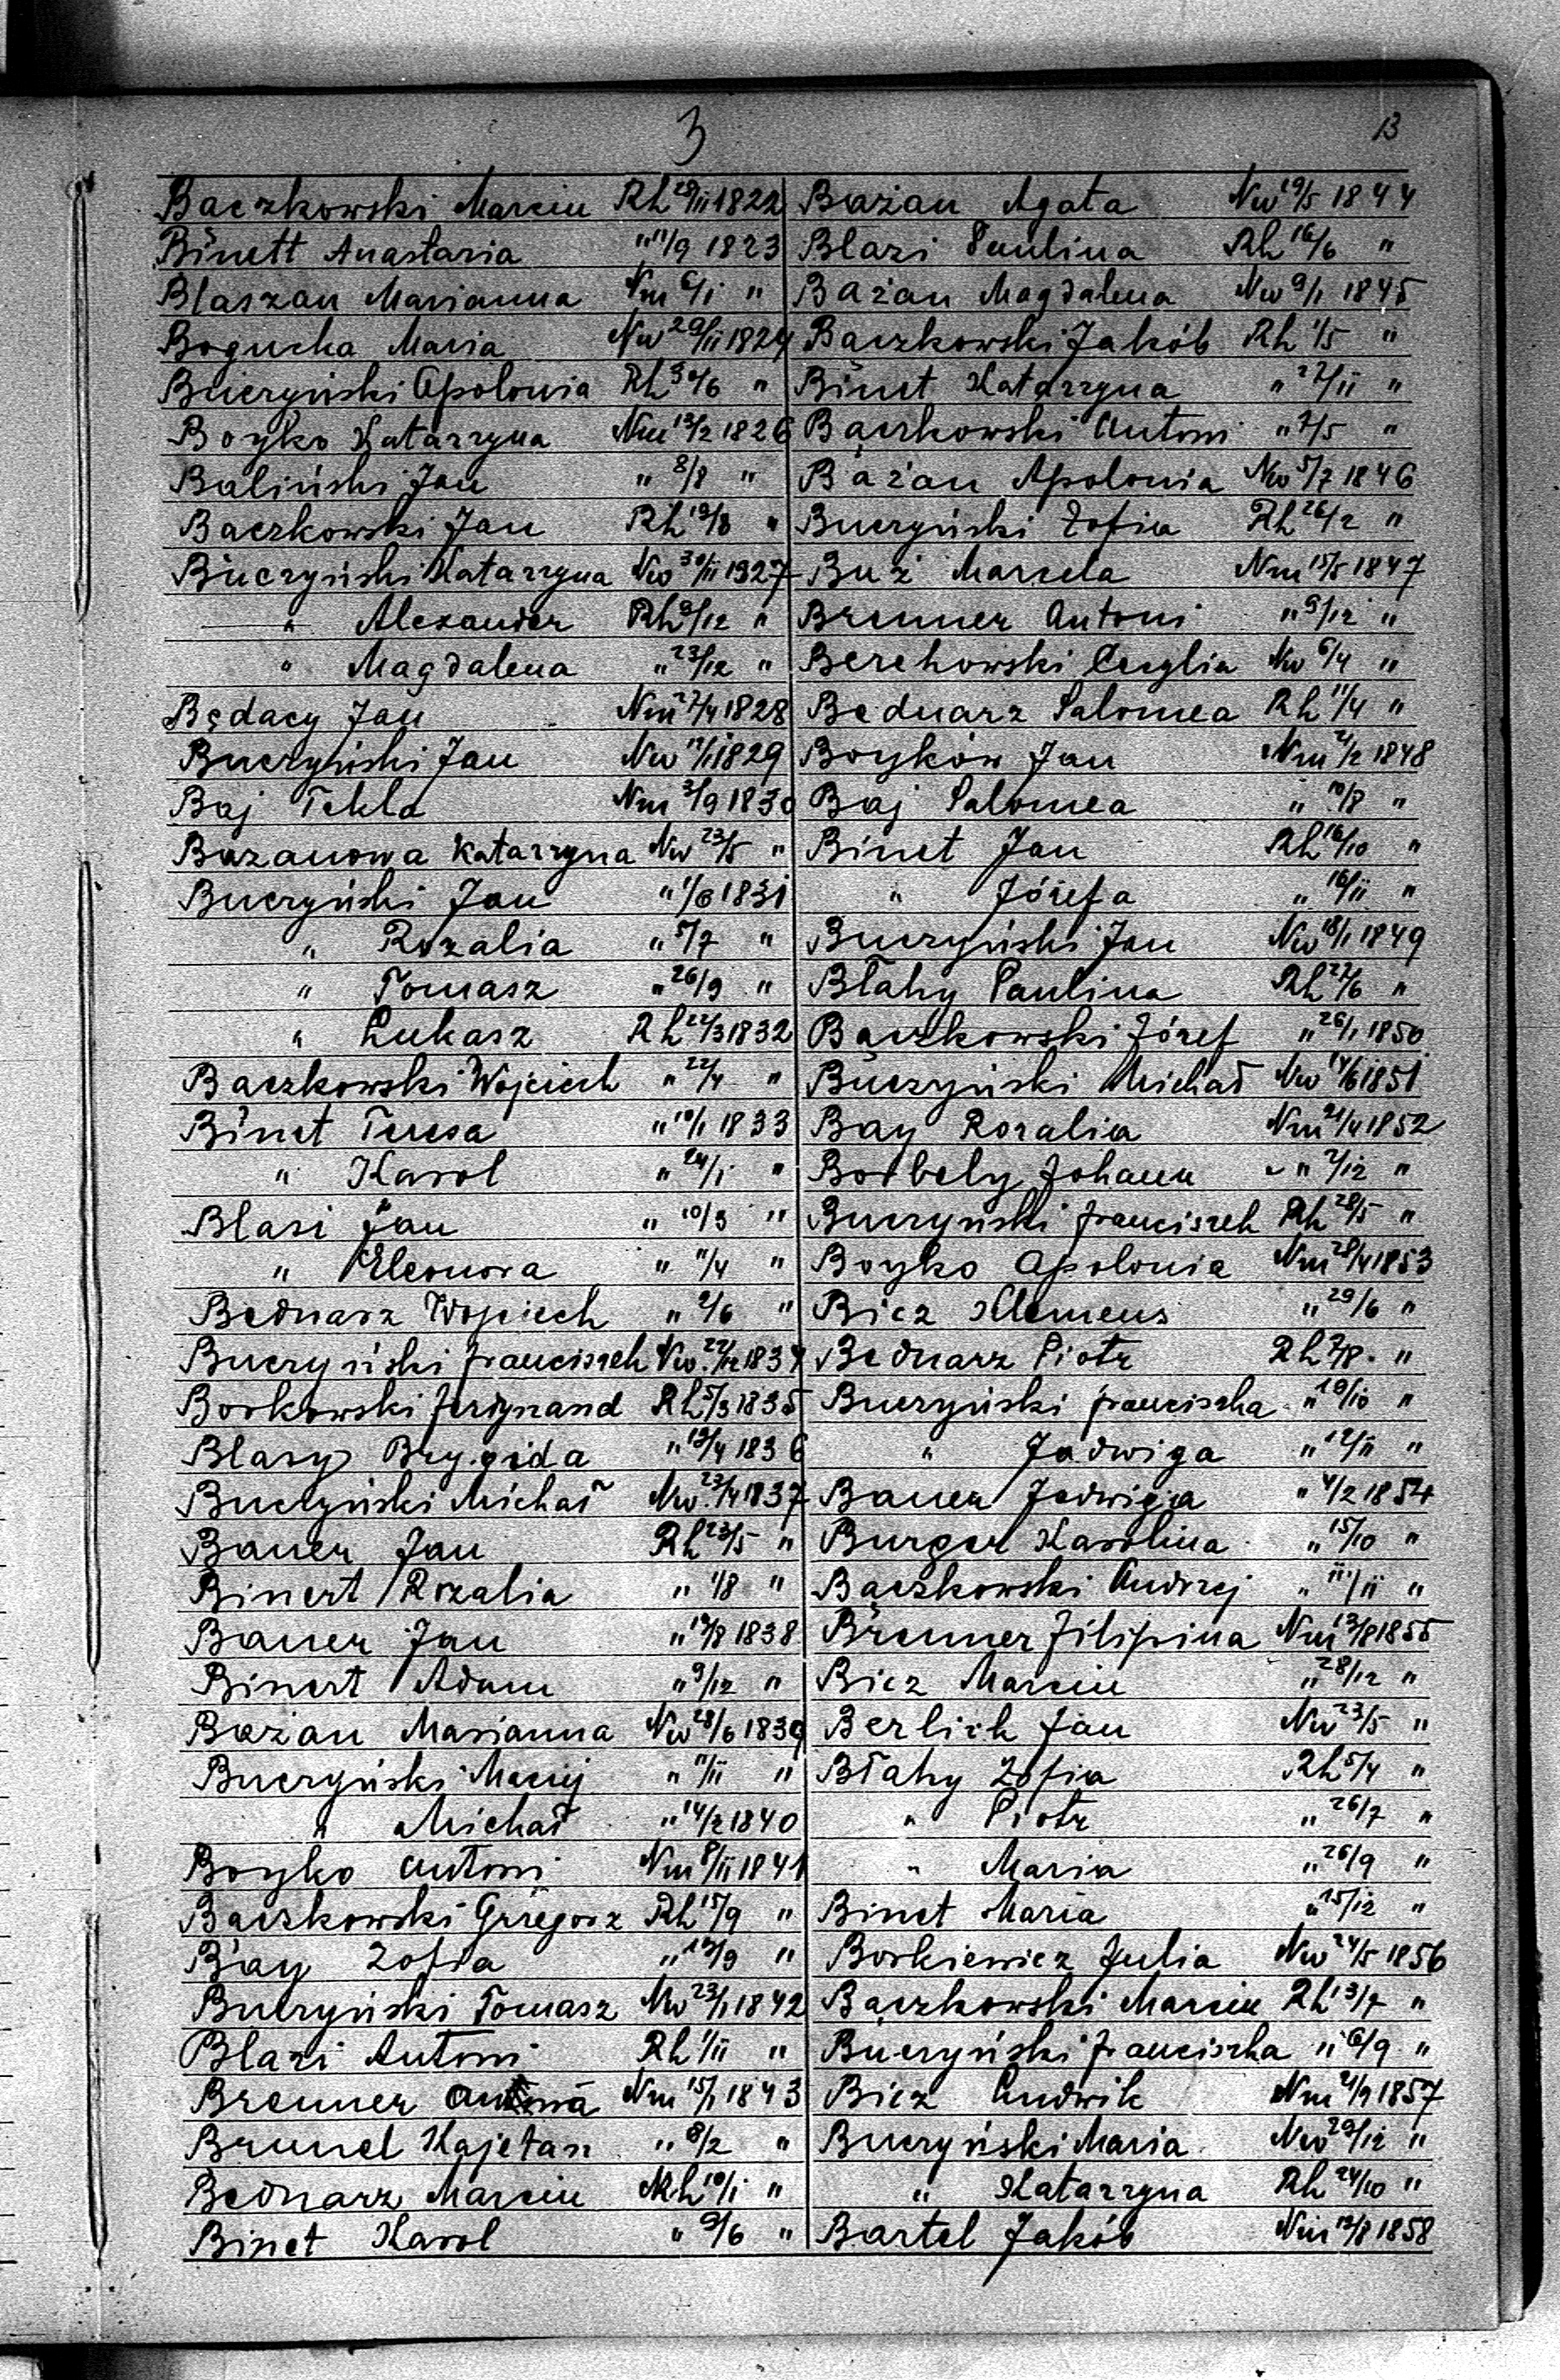 3
B
Baczkowski Marcin Rh 28/11 1822
Binett Anastazia " 11/9 1823
Blaszan Marianna Nm 6/1 "
Bogucka Maria Nw 29/11 1824
Buczyński Apolonia Rh 30/6 "
Boyko Katarzyna Nm 13/2 1826
Baliński Jan " 8/8 "
Baczkowski Jan Rh 19/8 "
Buczyński Katarzyna Nw 30/11 1927
" Alexander Rh 9/12 "
" Magdalena " 23/12 "
Będacy Jan Nm 27/4 1828
Buczyński Jan Nw 12/1 1829
Baj Tekla Nm 3/9 1830
Bazanowa Katarzyna Nw 23/5 "
Buczyński Jan " 1/6 1831
" Rozalia " 5/7 "
" Tomasz " 26/9 "
" Lukasz Rh 22/3 1832
Baczkowski Wojciech " 22/4 "
Binet Teresa " 10/1 1833
" Karol " 24/1 "
Blasi Jan " 10/3 "
" Eleonora " 11/4 "
Bednarz Wojciech " 2/6 "
Buczyński Franciszek Nw. 22/12 1834
Borkowski Ferdynand Rh 5/3 1835
Blasy Brygida " 13/4 1836
Buczyński Michał Nw. 23/4 1837
Bauer Jan Rh 23/5 "
Binert Rozalia " 1/8 "
Bauer Jan " 19/8 1838
Binert Adam " 9/12 "
Bazan Marianna Nw 28/6 1839
Buczyński Maciej " 11/11 "
" Michał " 14/2 1840
Boyko Antoni Nm 8/11 1841
Baczkowski Grzegorz Rh 15/9 "
Bay Zofia " 19/9 "
Buczyński Tomasz Nw 23/1 1842
Blazi Antoni Rh 1/11 "
Brenner Nm 15/1 1843
Brunel Kajetan " 8/2 "
Bednarz Marcin Rh 10/1 "
Binet Karol " 9/6 "
Bażan Agata Nw 19/5 1844
Blazi Paulina Rh 16/6 "
Bażan Magdalena Nw 9/1 1845
Baczkowski Jakób Rh 1/5 "
Binet Katarzyna " 27/11 "
Baczkowski Antoni " 7/5 "
Bażan Apolonia Nw 5/7 1846
Buczyński Zofia Rh 26/2 "
Buź Marcela Nm 15/5 1847
Brenner Antoni " 9/12 "
Berehowski Cecylia Nw 6/4 "
Bednarz Salomea Rh 11/4 "
Boyków Jan Nm 2/2 1848
Baj Salomea " 10/8 "
Binet Jan Rh 16/10 "
" Józefa " 16/11 "
Buczyński Jan Nw 18/1 1849
Błahy Paulina Rh 27/6 "
Baczkowski Józef " 26/1 1850
Buczyński Michał Nw 14/6 1851
Bay Rozalia Nm 21/4 1852
Borbely Johann " 2/12 "
Buczyński Franciszek Rh 28/5 "
Boyko Apolonia Nm 28/4 1853
Bicz Klemens " 29/6 "
Bednarz Piotr Rh 7/8 "
Buczyński Franciszka " 10/10 "
" Jadwiga " 12/11 "
Bauer Jadwiga " 4/2 1854
Burger Karolina " 15/10 "
Baczkowski Andrzej " 11/11 "
Brenner Filipina Nm 13/8 1855
Bicz Marcin " 28/12 "
Berlich Jan Nw 23/5 "
Błahy Zofia Rh 5/4 "
" Piotr " 26/7 "
" Maria " 26/9 "
Binet Maria " 15/12 "
Borkiewicz Julia Nw 24/5 1856
Baczkowski Marcin Rh 13/7 "
Buczyński Franciszka " 6/9 "
Bicz Ludwik Nm 21/9 1857
Buczyński Maria Nw 29/12 "
" Katarzyna Rh 24/10 "
Bartel Jakób Nm 12/8 1858